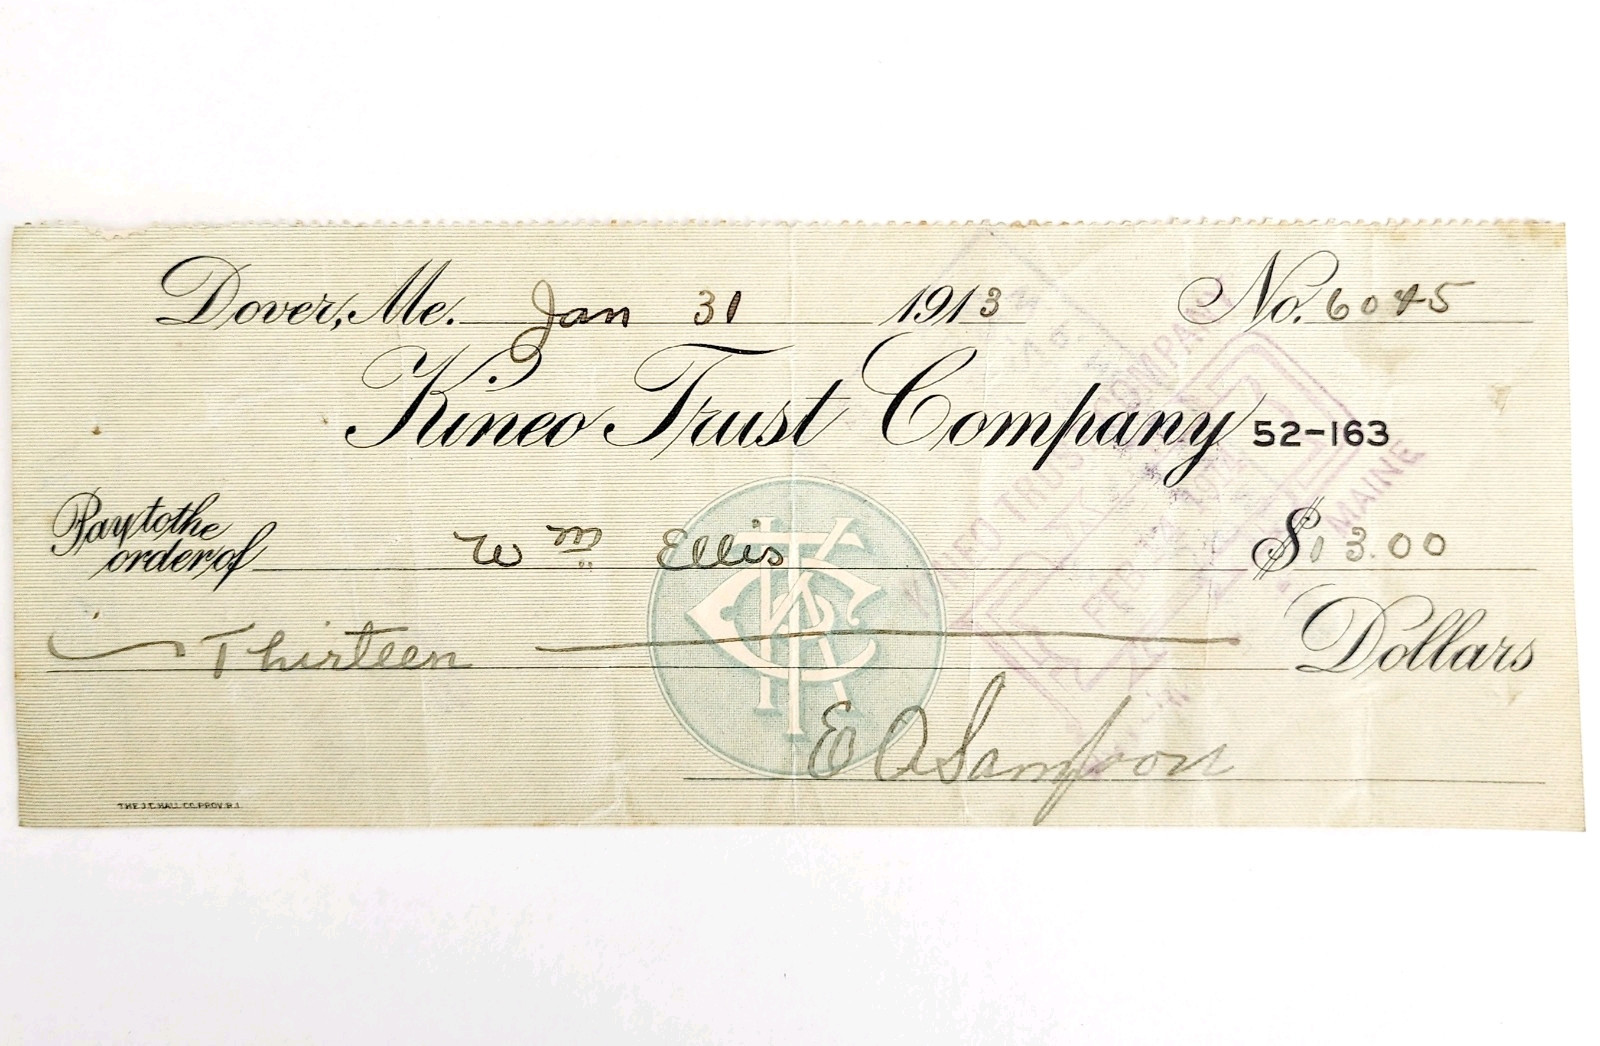 Dover, Me. Jan 31 1913 No. 6045
Kineo Trust Company 52-163
Pay to the
order of Wm Ellis $13.00
Thirteen Dollars
E A Sampson
THE J.C. HALL CO. PROV. R.I.
KINEO TRUST COMPANY
FEB
MAINE